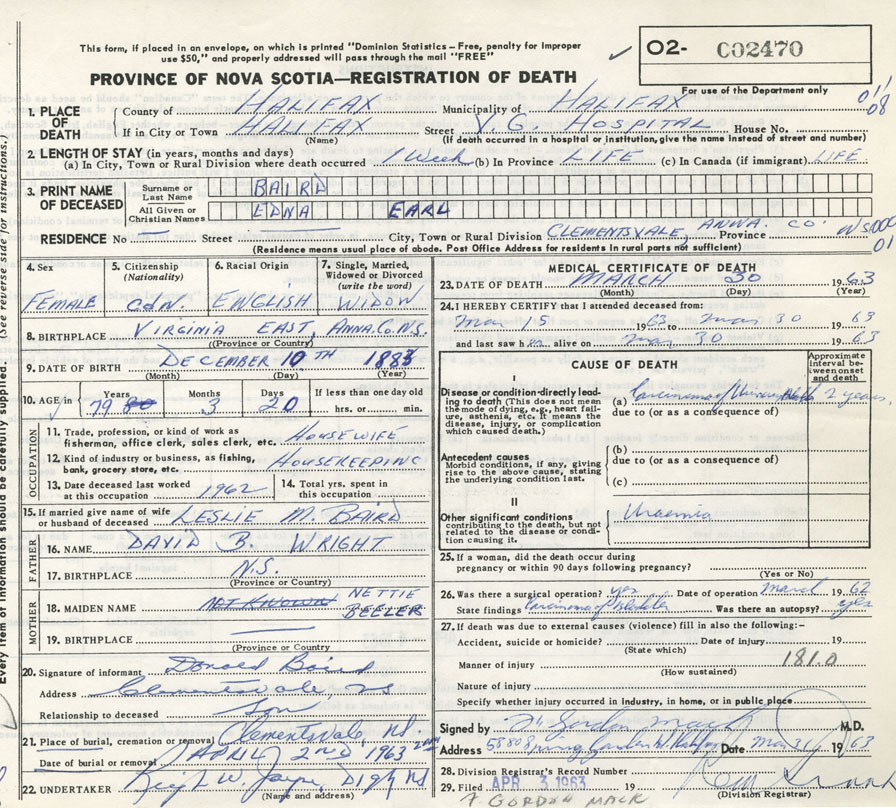 This form, if placed in an envelope, on which is printed "Dominion Statistics – Free, penalty for Improper
use $50," and properly addressed will pass through the mail "FREE"
O2- C02470
PROVINCE OF NOVA SCOTIA—REGISTRATION OF DEATH
For use of the Department only
1. PLACE OF DEATH
County of HALIFAX Municipality of HALIFAX
If in City or Town HALIFAX Street V.G. HOSPITAL House No.
(Name) (If death occurred in a hospital or institution, give the name instead of street and number)
2. LENGTH OF STAY (in years, months and days)
(a) In City, Town or Rural Division where death occurred 1 Week (b) In Province LIFE (c) In Canada (if immigrant) LIFE
3. PRINT NAME OF DECEASED
Surname or Last Name BAIRD
All Given or Christian Names EDNA EARL
RESIDENCE No — Street — City, Town or Rural Division CLEMENTSVALE, ANNA. CO. Province NS
(Residence means usual place of abode. Post Office Address for residents in rural parts not sufficient)
4. Sex FEMALE
5. Citizenship (Nationality) CDN.
6. Racial Origin ENGLISH
7. Single, Married, Widowed or Divorced (write the word) WIDOW
8. BIRTHPLACE VIRGINIA EAST, ANNA. Co. N.S.
(Province or Country)
9. DATE OF BIRTH DECEMBER 10TH 1883
(Month) (Day) (Year)
10. AGE in Years 79 80 Months 3 Days 20 If less than one day old hrs. or min.
OCCUPATION
11. Trade, profession, or kind of work as fisherman, office clerk, sales clerk, etc. HOUSEWIFE
12. Kind of industry or business, as fishing, bank, grocery store, etc. HOUSEKEEPING
13. Date deceased last worked at this occupation 1962
14. Total yrs. spent in this occupation
15. If married give name of wife or husband of deceased LESLIE M. BAIRD
FATHER
16. NAME DAVID B. WRIGHT
17. BIRTHPLACE N.S.
(Province or Country)
MOTHER
18. MAIDEN NAME NOT KNOWN NETTIE BEELER
19. BIRTHPLACE —
(Province or Country
20. Signature of informant Donald Baird
Address Clementsvale, NS
Relationship to deceased Son
21. Place of burial, cremation or removal Clementsvale, NS
Date of burial or removal APRIL 2ND 1963
22. UNDERTAKER W. Digby NS
(Name and address)
MEDICAL CERTIFICATE OF DEATH
23. DATE OF DEATH MARCH 30 1963
(Month) (Day) (Year)
24. I HEREBY CERTIFY that I attended deceased from:
Mar 15 1963 to Mar 30 1963
and last saw her alive on Mar 30 1963
CAUSE OF DEATH
Approximate interval between onset and death
I
Disease or condition directly leading to death (This does not mean the mode of dying, e.g., heart failure, asthenia, etc. It means the disease, injury, or complication which caused death.)
(a) Carcinoma of Urinary Bladder 2 years.
due to (or as a consequence of)
Antecedent causes
Morbid conditions, if any, giving rise to the above cause, stating the underlying condition last.
(b)
due to (or as a consequence of)
(c)
II
Other significant conditions contributing to the death, but not related to the disease or condition causing it.
Uraemia
25. If a woman, did the death occur during pregnancy or within 90 days following pregnancy?
(Yes or No)
26. Was there a surgical operation? yes Date of operation March 1962
State findings Carcinoma of bladder Was there an autopsy? yes
27. If death was due to external causes (violence) fill in also the following:–
Accident, suicide or homicide? Date of injury 19
(State which)
Manner of injury 181.0
(How sustained)
Nature of injury
Specify whether injury occurred in industry, in home, or in public place
Signed by Gordon Mack M.D.
Address 5880 Spring Garden Rd Halifax Date Mar 31 1963
28. Division Registrar's Record Number
29. Filed APR 3 1963 19
(Division Registrar)
GORDON MACK
Every item of information should be carefully supplied. (See reverse side for instructions.)